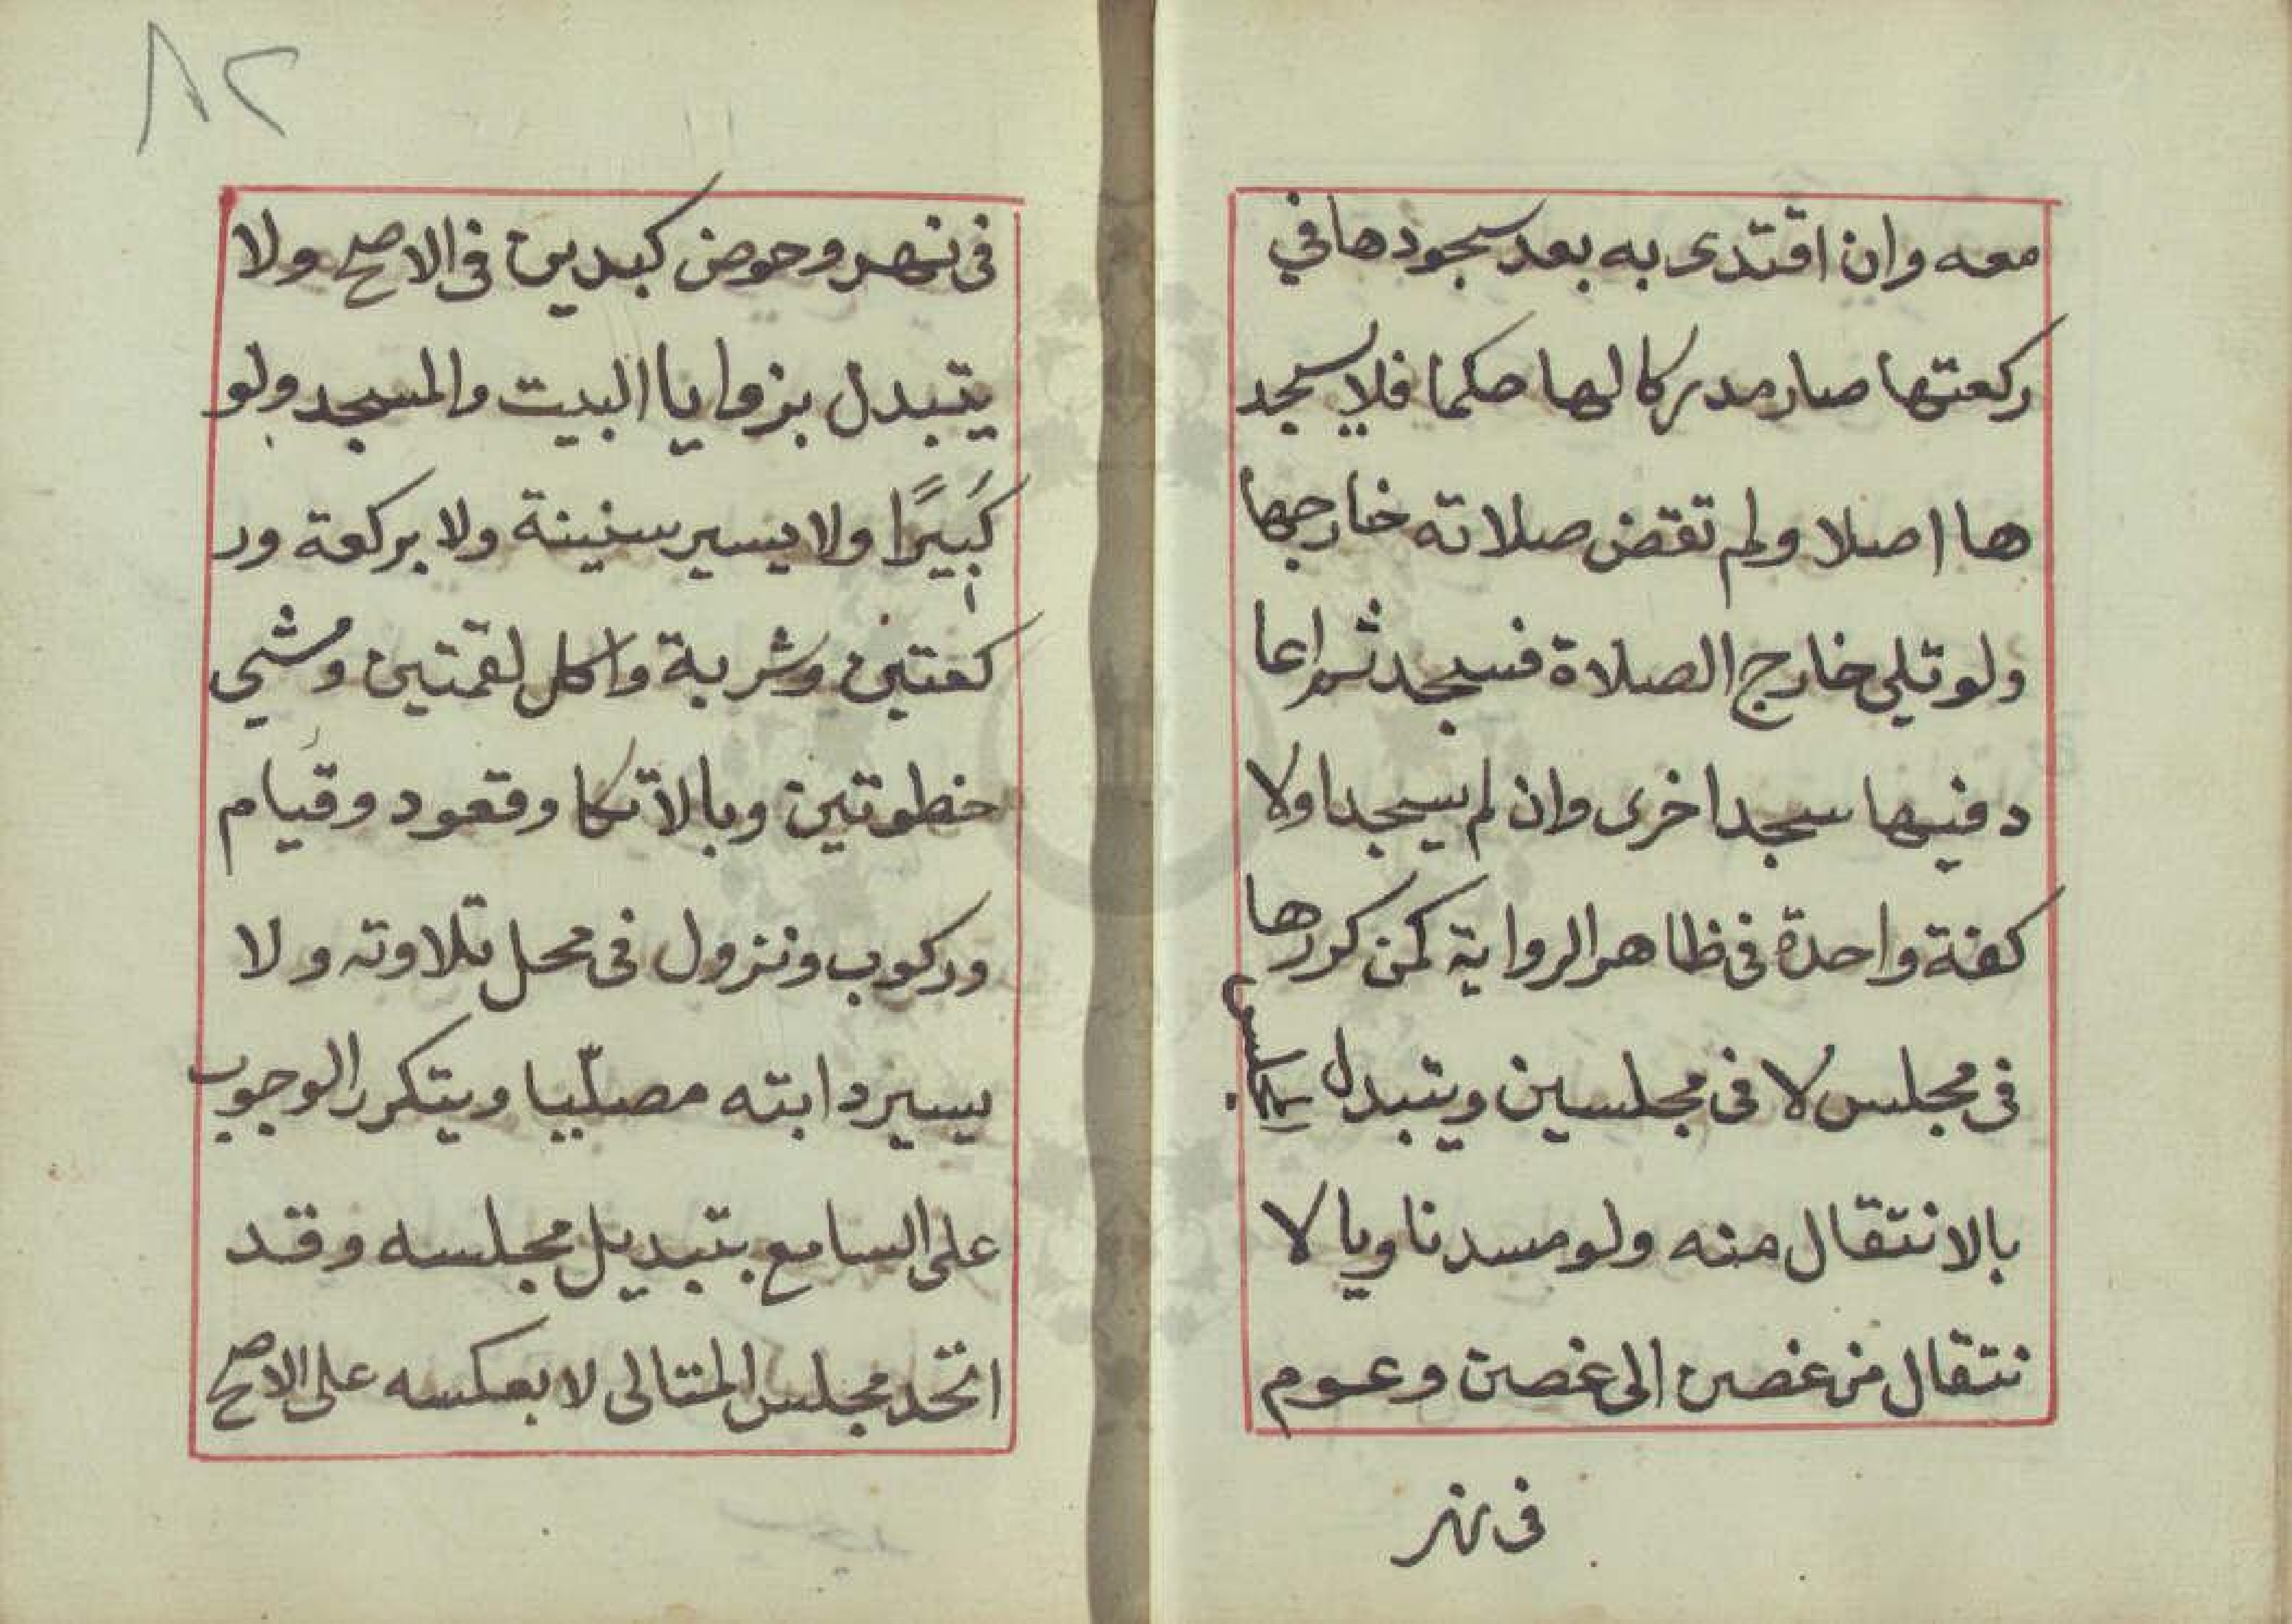 معه وان اقتدى به بعد سجودها في
ركعتها صار مدركا لها حكما فلا يسجد
ها اصلا ولم تقض صلاته خارجها
ولو تلى خارج الصلاة فسجد ثم اعا
د فيها سجد اخرى وان لم يسجد اولا
كفته واحدة فى ظاهر الرواية كمن كررها
فى مجلس لا فى مجلسين ويتبدل المجلس
بالانتقال منه ولو مسدنا ويا لا
نتقال من غصن الى غصن وعوم
فى نهر
٨٢
فى نهر وحوض كبدين فى الاصح ولا
يتبدل بزوايا البيت والمسجد ولو
كَبيرًا ولا يسير سفينة ولا بركعة ور
كعتين وشربة واكل لقمتين ومشي
خطوتين وبالاتكا وقعود وقيام
وركوب ونزول فى محل تلاوته ولا
يسير دابته مصلّيا ويتكرر الوجوب
على السامع بتبديل مجلسه وقد
اتحد مجلس المتالى لا بعكسه على الاصح